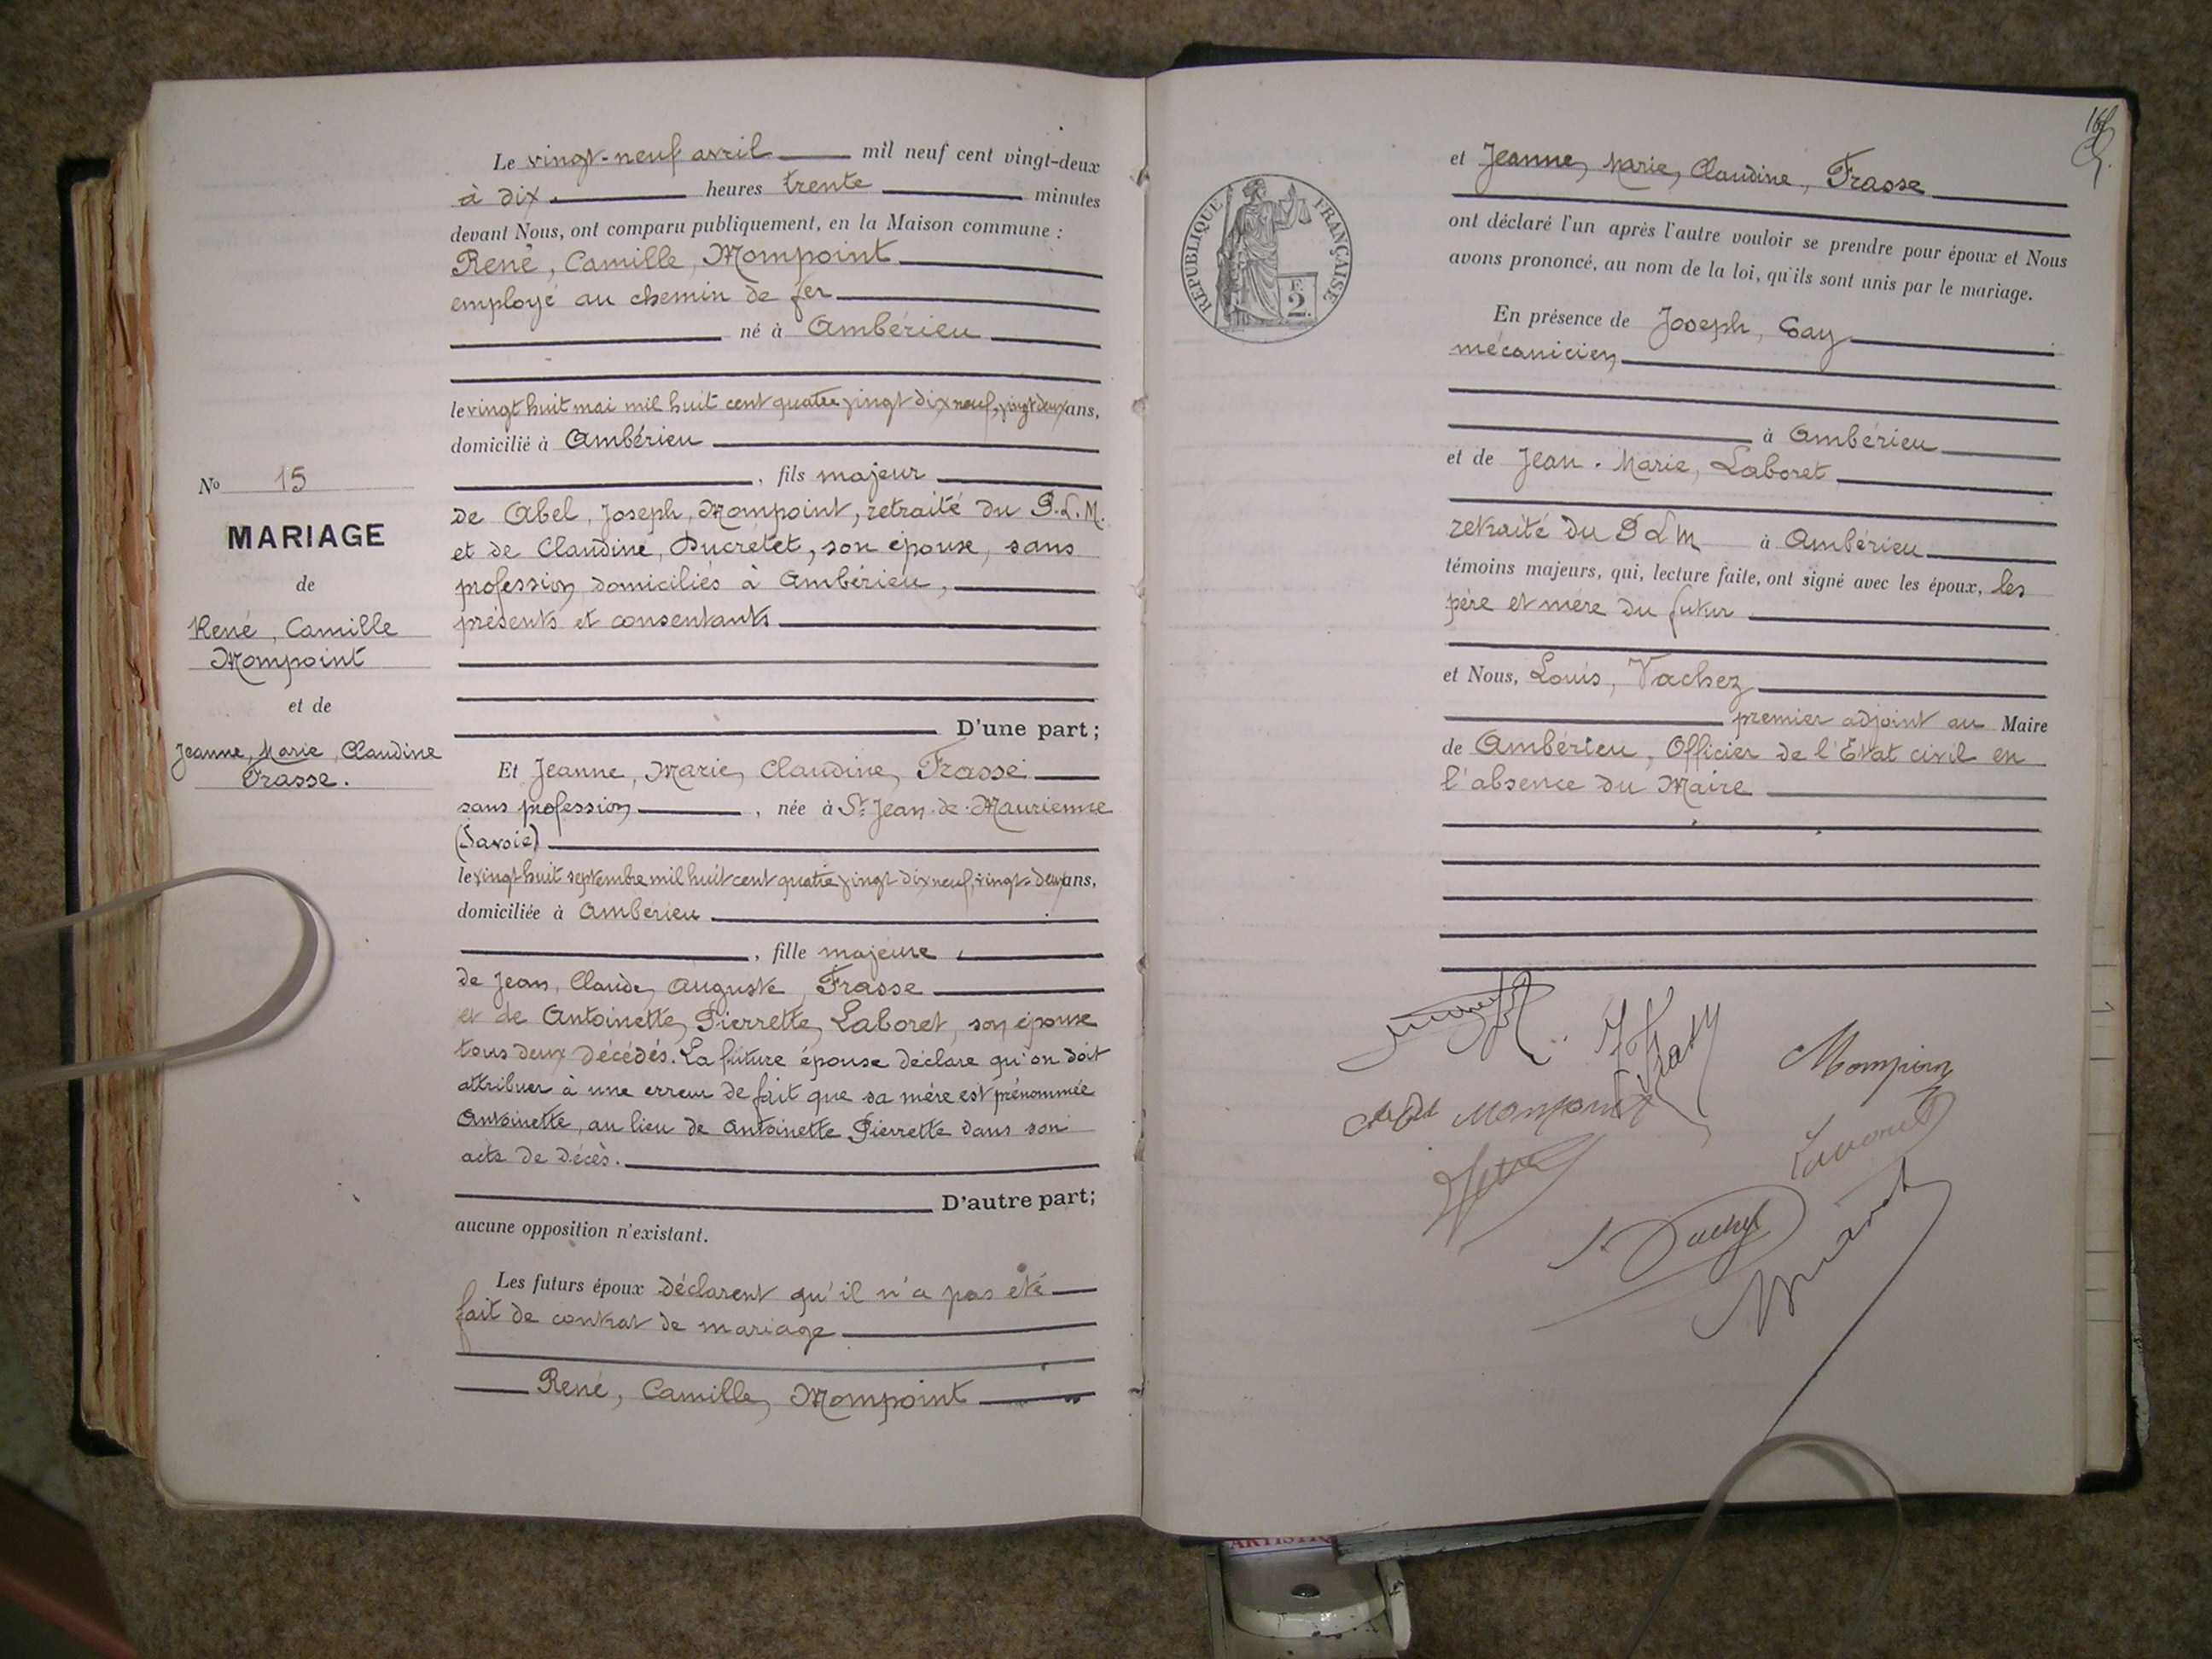 Le vingt-neuf avril mil neuf cent vingt-deux
à dix heures trente minutes
devant Nous, ont comparu publiquement, en la Maison commune :
René, Camille, Mompoint
employé au chemin de fer
né à Ambérieu
le vingt huit mai mil huit cent quatre vingt dix neuf, vingt deux ans,
domicilié à Ambérieu
, fils majeur
de Abel, Joseph, Mompoint, retraité du P.L.M.
et de Claudine, Ducretet, son épouse, sans
profession domiciliés à Ambérieu,
présents et consentants
D'une part ;
No 15
MARIAGE
de
René, Camille
Mompoint
et de
Jeanne, Marie, Claudine
Frasse.
Et Jeanne, Marie, Claudine, Frasse
sans profession, née à St Jean-de-Maurienne
(Savoie)
le vingt huit septembre mil huit cent quatre vingt dix neuf, vingt-deux ans,
domiciliée à Ambérieu
, fille majeure
de Jean, Claude, Auguste, Frasse
et de Antoinette, Pierrette, Laboret, son épouse
tous deux décédés. La future épouse déclare qu'on doit
attribuer à une erreur de fait que sa mère est prénommée
Antoinette, au lieu de Antoinette Pierrette dans son
acte de décès.
D'autre part;
aucune opposition n'existant.
Les futurs époux déclarent qu'il n'a pas été
fait de contrat de mariage
René, Camille, Mompoint
et Jeanne, Marie, Claudine, Frasse
ont déclaré l'un après l'autre vouloir se prendre pour époux et Nous
avons prononcé, au nom de la loi, qu'ils sont unis par le mariage.
RÉPUBLIQUE FRANÇAISE
F.
2.
En présence de Joseph, Gay
mécanicien
à Ambérieu
et de Jean-Marie, Laboret
retraité du P L M à Ambérieu
témoins majeurs, qui, lecture faite, ont signé avec les époux, les
père et mère du futur
et Nous, Louis, Vachez
premier adjoint au Maire
de Ambérieu, Officier de l'Etat civil en
l'absence du Maire
Mompoint
Mompoint
Laboret